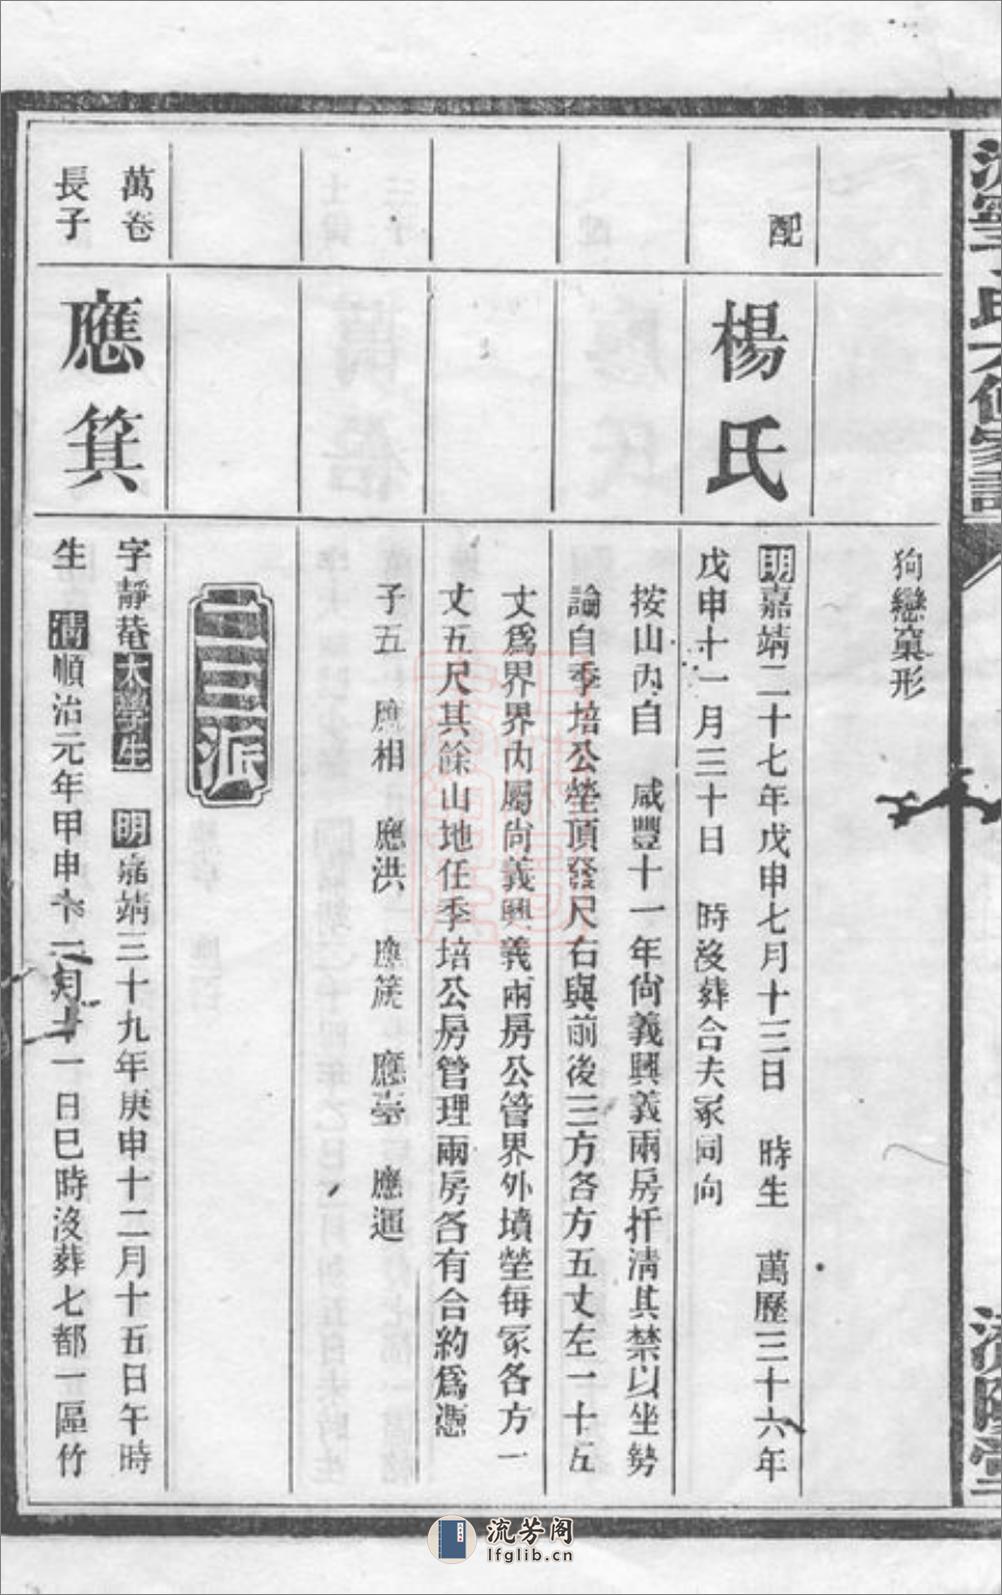 狗戀窠形
配
楊氏
明嘉靖二十七年戊申七月十三日 時生 萬歷三十六年
戊申十一月三十日 時沒葬合夫冢同向
按山內自 咸豐十一年尙義興義兩房扦清其禁以坐勢
論自季培公塋頂發尺右與前後三方各方五丈左一十五
丈爲界界內屬尙義興義兩房公管界外墳塋每冢各方一
丈五尺其餘山地任季培公房管理兩房各有合約爲憑
子五 應相 應洪 應篪 應臺 應通
二三派
萬卷
長子
應箕
字靜菴太學生 明嘉靖三十九年庚申十二月十五日午時
生 清順治元年甲申十二月十一日巳時沒葬七都一區竹
流芳阁
lfglib.cn